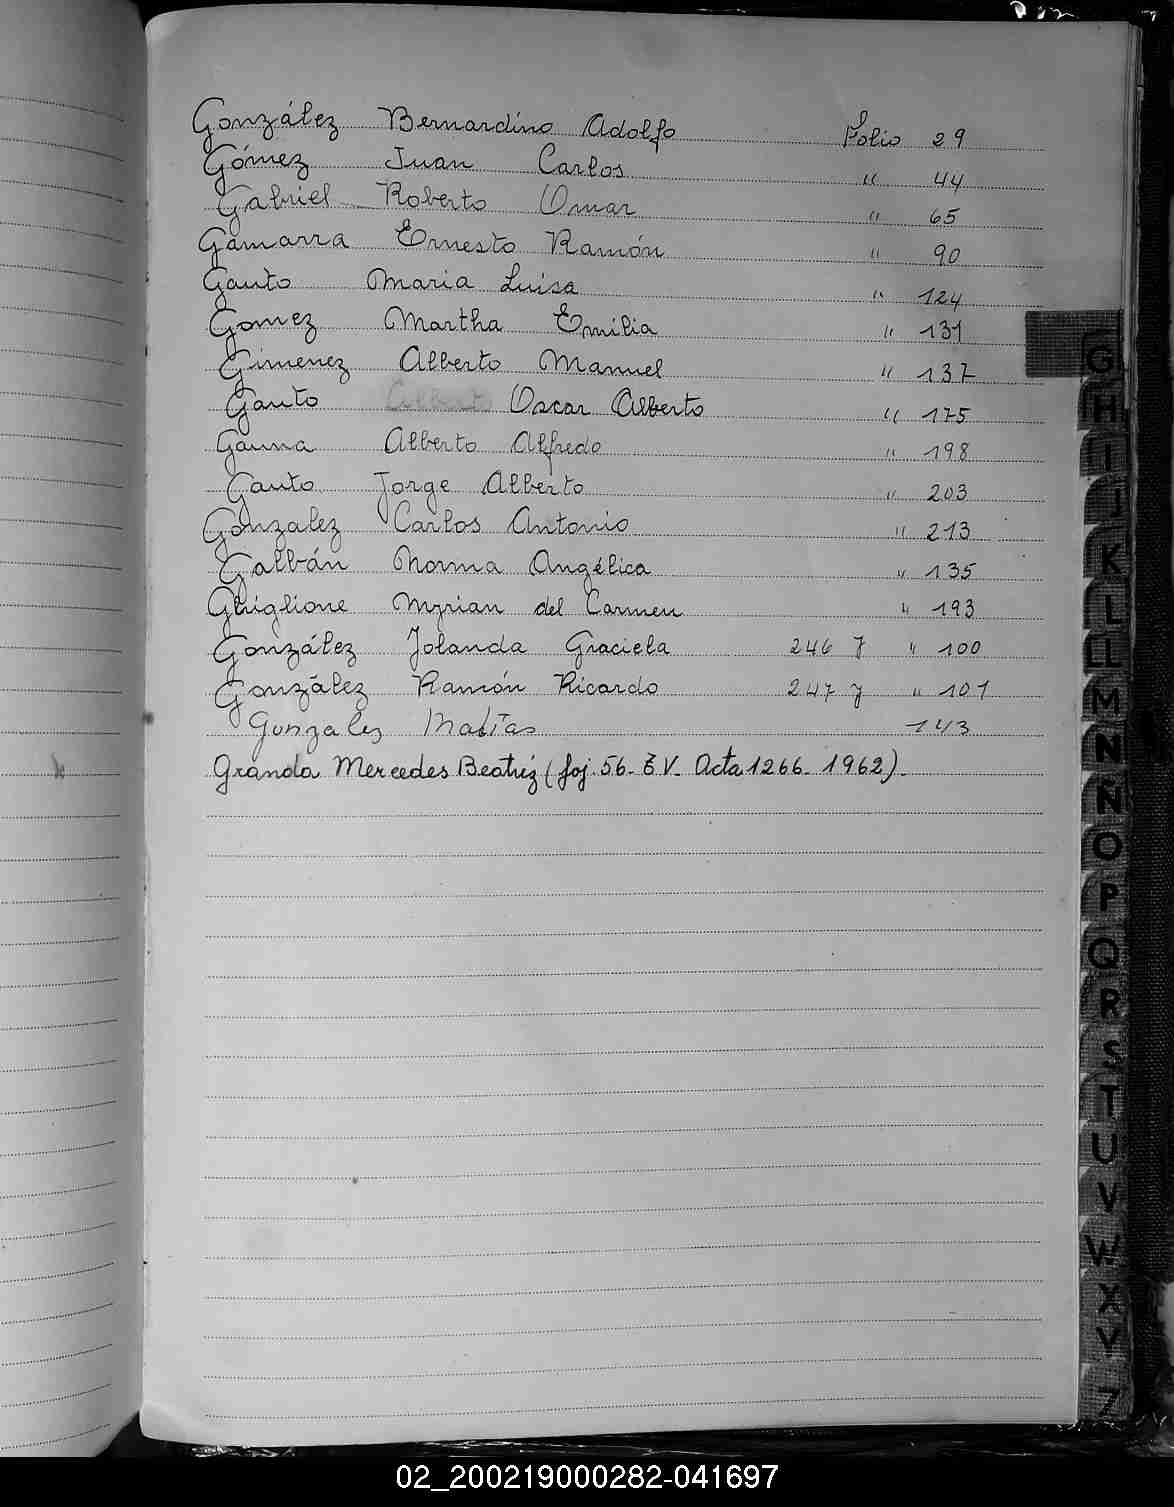 González Bernardino Adolfo Folio 29
Gómez Juan Carlos " 44
Gabriel Roberto Omar " 65
Gamarra Ernesto Ramón " 90
Gauto Maria Luisa " 124
Gomez Martha Emilia " 131
Gimenez Alberto Manuel " 137
Gauto Oscar Alberto " 175
Gauna Alberto Alfredo " 198
Gauto Jorge Alberto " 203
Gonzalez Carlos Antonio " 213
Galbán Norma Angélica " 135
Ghiglione Myrian del Carmen " 193
González Jolanda Graciela 246 J " 100
González Ramón Ricardo 247 J " 101
Gonzalez Matías 143
Granda Mercedes Beatriz (foj. 56- Acta 1266- 1962)-
G
H
I
J
K
L
LL
M
N
Ñ
O
P
Q
R
S
T
U
V
W
X
Y
Z
02_200219000282-041697